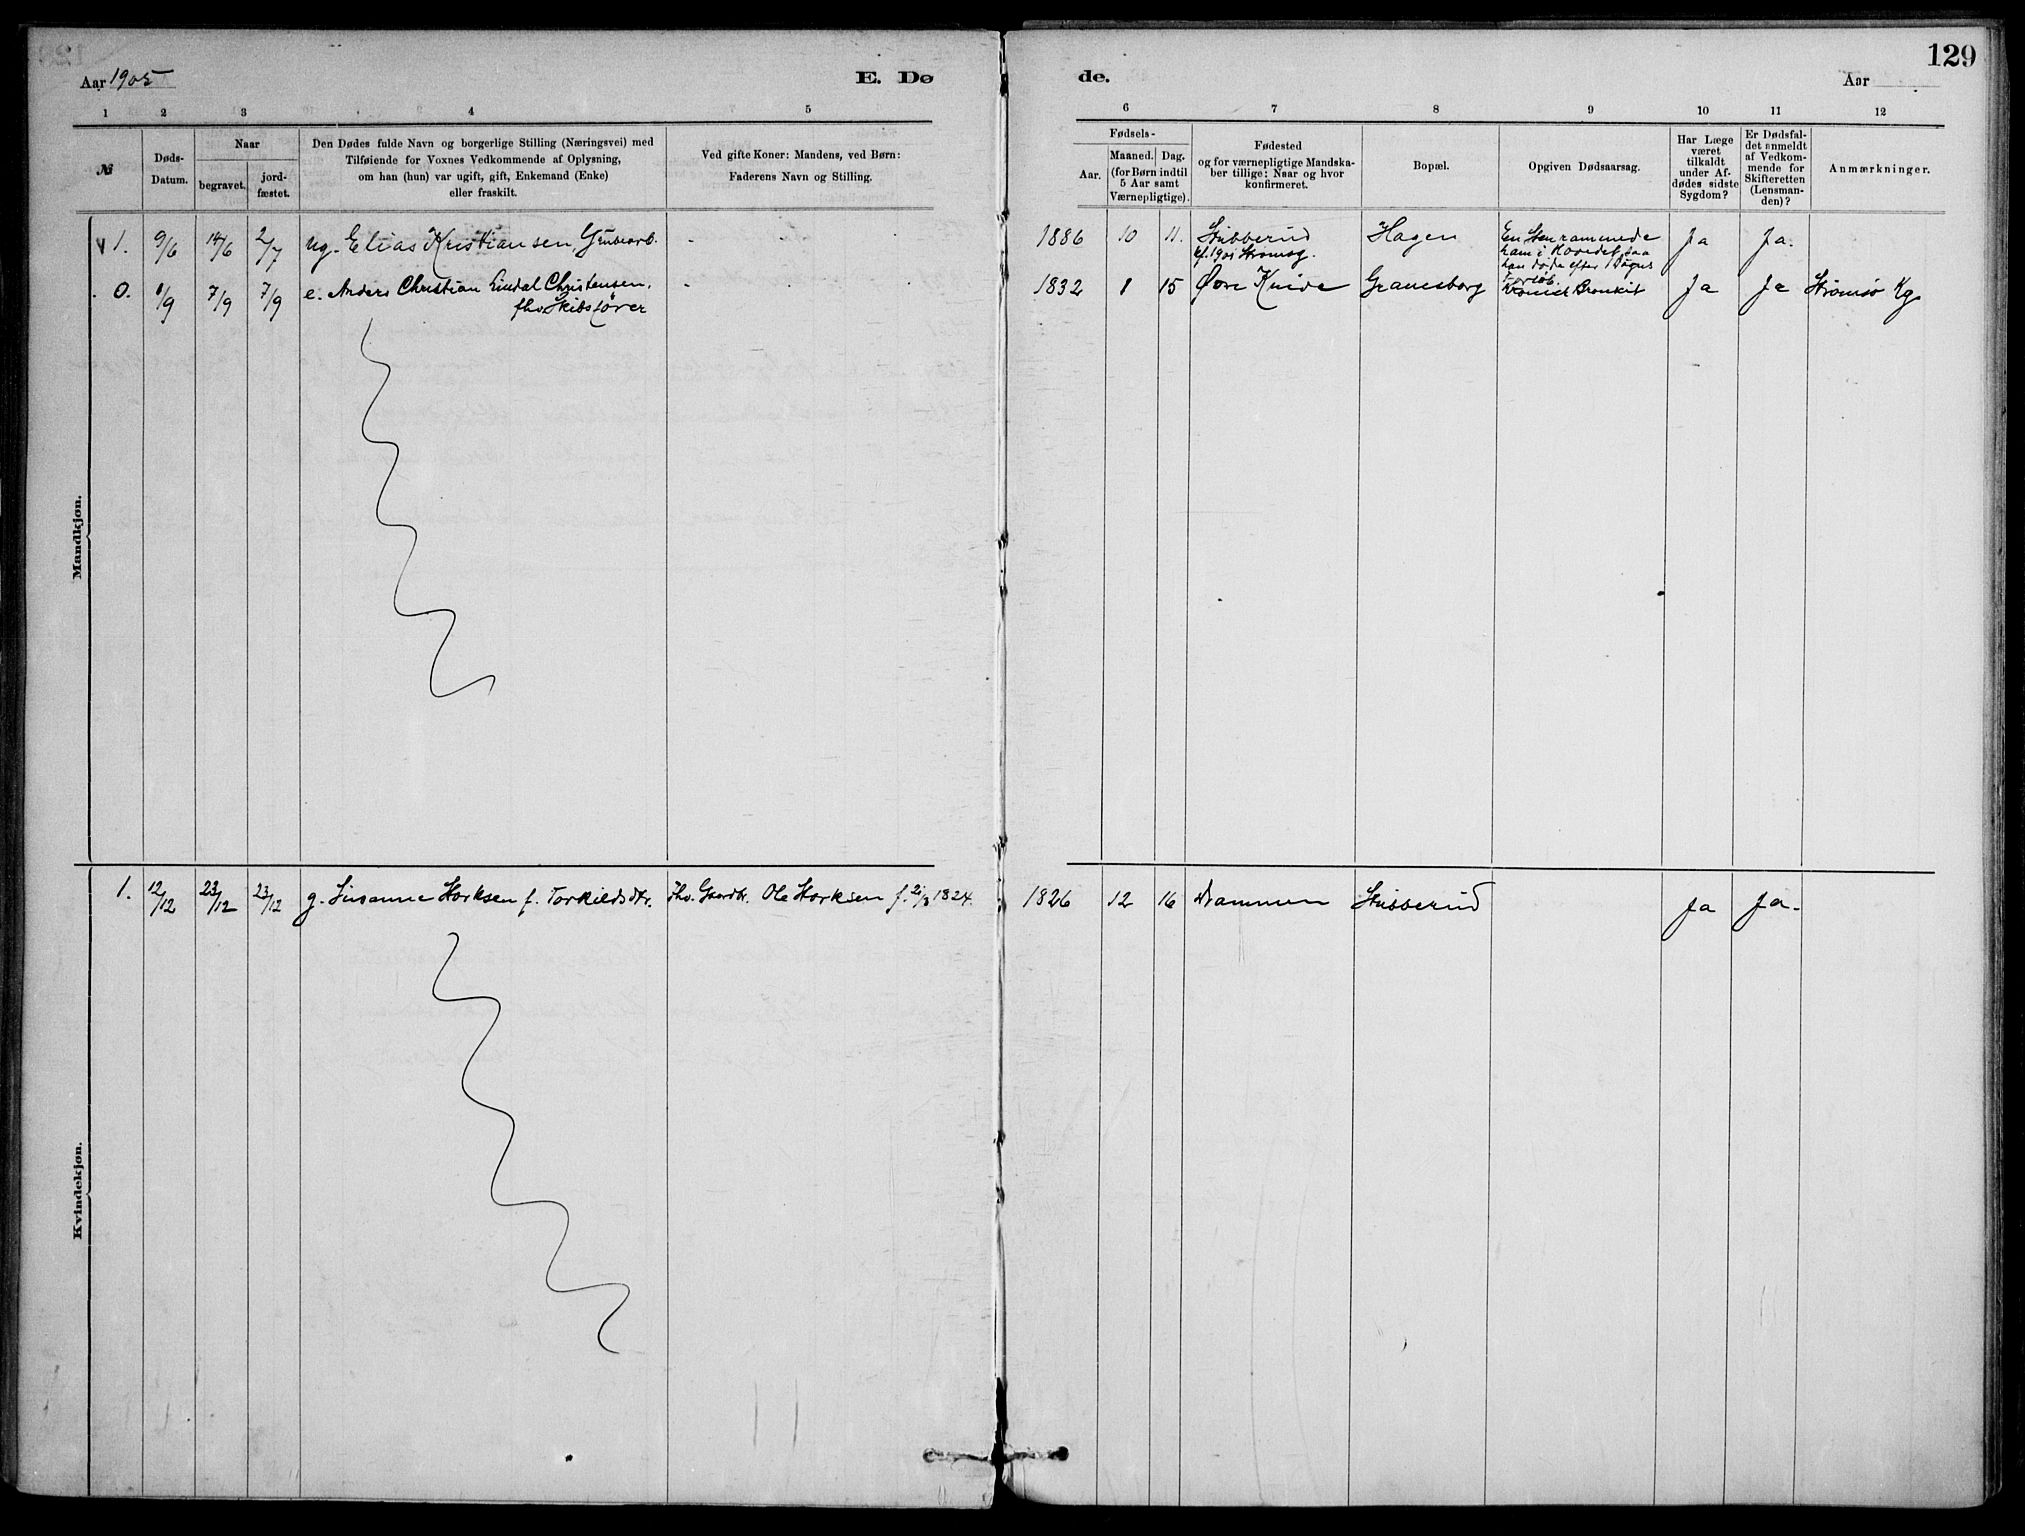 129
Aar 1905
E. Dø
de.
Aar
1 2 3 4 5
6 7 8 9 10 11 12
№
Døds-
Datum.
Naar
begravet.
jord-
fæstet.
Den Dødes fulde Navn og borgerlige Stilling (Næringsvei) med
Tilføiende for Voxnes Vedkommende af Oplysning,
om han (hun) var ugift, gift, Enkemand (Enke)
eller fraskilt.
Ved gifte Koner: Mandens, ved Børn:
Faderens Navn og Stilling.
Fødsels-
Aar.
Maaned. Dag.
(for Børn indtil
5 Aar samt
Værnepligtige).
Fødested
og for værnepligtige Mandska-
ber tillige: Naar og hvor
konfirmeret.
Bopæl.
Opgiven Dødsaarsag.
Har Læge
været
tilkaldt
under Af-
dødes sidste
Sygdom?
Er Dødsfal-
det anmeldt
af Vedkom-
mende for
Skifteretten
(Lensman-
den)?
Anmærkninger.
Mandkjøn.
1. 9/6 14/6 2/7 ug. Elias Kristiansen, Grubearb. - 1886 10 11. Stubberud Hagen En Sten rammede Ja Ja.
cf. 1901 Strømsg. ham i Hovedet, saa
han døde efter 1 Døgns
Forløb.
0. 1/9 7/9 7/9 e. Anders Christian Lindal Christensen, - 1832 1 15 Øvre Granesborg Bronkit Ja Ja Strømsø Kg
fhv. Skibsfører
Kvindekjøn.
1. 12/12 23/12 23/12 g. Susanne Horksen f. Torkildsdtr. fhv. Gaardbr. Ole Horksen f. 21/3 1824. 1826 12 16 Drammen Stubberud Ja Ja.